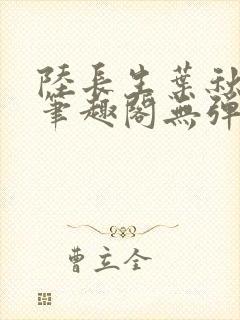 陸長生葉秋
筆趣閣無彈
曹立全